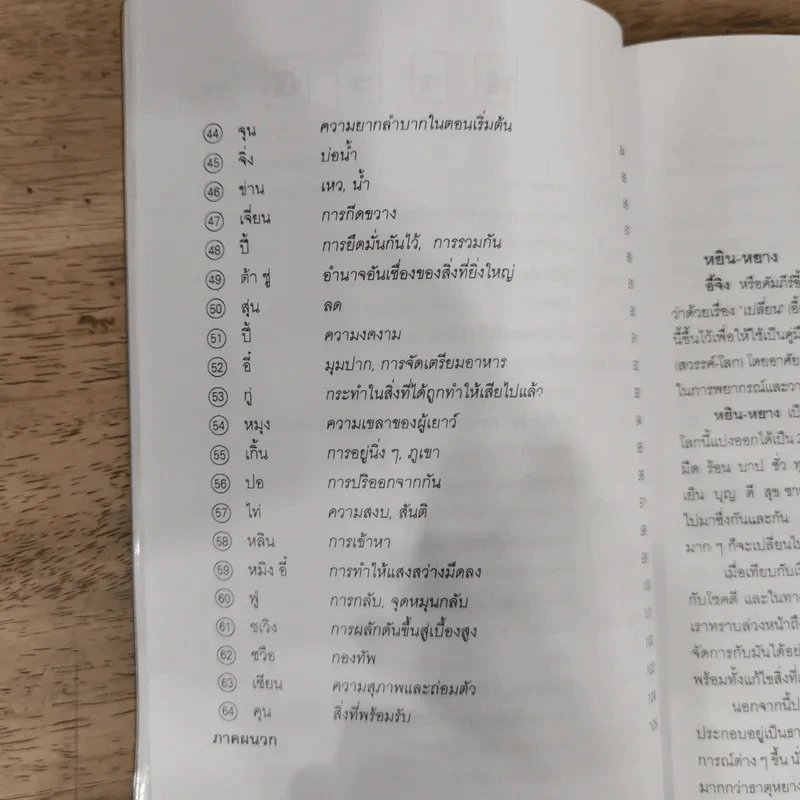 44 จุน ความยากลำบากในตอนเริ่มต้น
45 จิ่ง บ่อน้ำ
46 ข่าน เหว, น้ำ
47 เจี่ยน การกีดขวาง
48 ปี้ การยึดมั่นกันไว้, การรวมกัน
49 ต้า ชู่ อำนาจอันเชื่องของสิ่งที่ยิ่งใหญ่
50 สุ่น ลด
51 ปี้ ความงดงาม
52 อี๋ มุมปาก, การจัดเตรียมอาหาร
53 กู่ กระทำในสิ่งที่ได้ถูกทำให้เสียไปแล้ว
54 หมุง ความเขลาของผู้เยาว์
55 เกิ้น การอยู่นิ่ง ๆ, ภูเขา
56 ปอ การปริออกจากกัน
57 ไท่ ความสงบ, สันติ
58 หลิน การเข้าหา
59 หมิง อี๋ การทำให้แสงสว่างมืดลง
60 ฟู่ การกลับ, จุดหมุนกลับ
61 ชเวิง การผลักดันขึ้นสู่เบื้องสูง
62 ซวือ กองทัพ
63 เชียน ความสุภาพและถ่อมตัว
64 คุน สิ่งที่พร้อมรับ
ภาคผนวก
99
100
101
102
103
104
105
หยิน-หยาง
อี้จิง หรือคัมภีร์อี้
ว่าด้วยเรื่อง "เปลี่ยน" (อี้
นี้ขึ้นไว้เพื่อให้ใช้เป็นคู่มื
(สวรรค์-โลก) โดยอาศัย
ในการพยากรณ์และวา
หยิน-หยาง เป็
โลกนี้แบ่งออกได้เป็น 2
มืด ร้อน บาป ชั่ว ทุ
เย็น บุญ ดี สุข ชา
ไปมาซึ่งกันและกัน
มาก ๆ ก็จะเปลี่ยนไป
เมื่อเทียบกับเรื
กับโชคดี และในทาง
เราทราบล่วงหน้าถึง
จัดการกับมันได้อย่
พร้อมทั้งแก้ไขสิ่งที่
นอกจากนี้ป
ประกอบอยู่เป็นธา
การณ์ต่าง ๆ ขึ้น นั่
มากกว่าธาตุหยาง